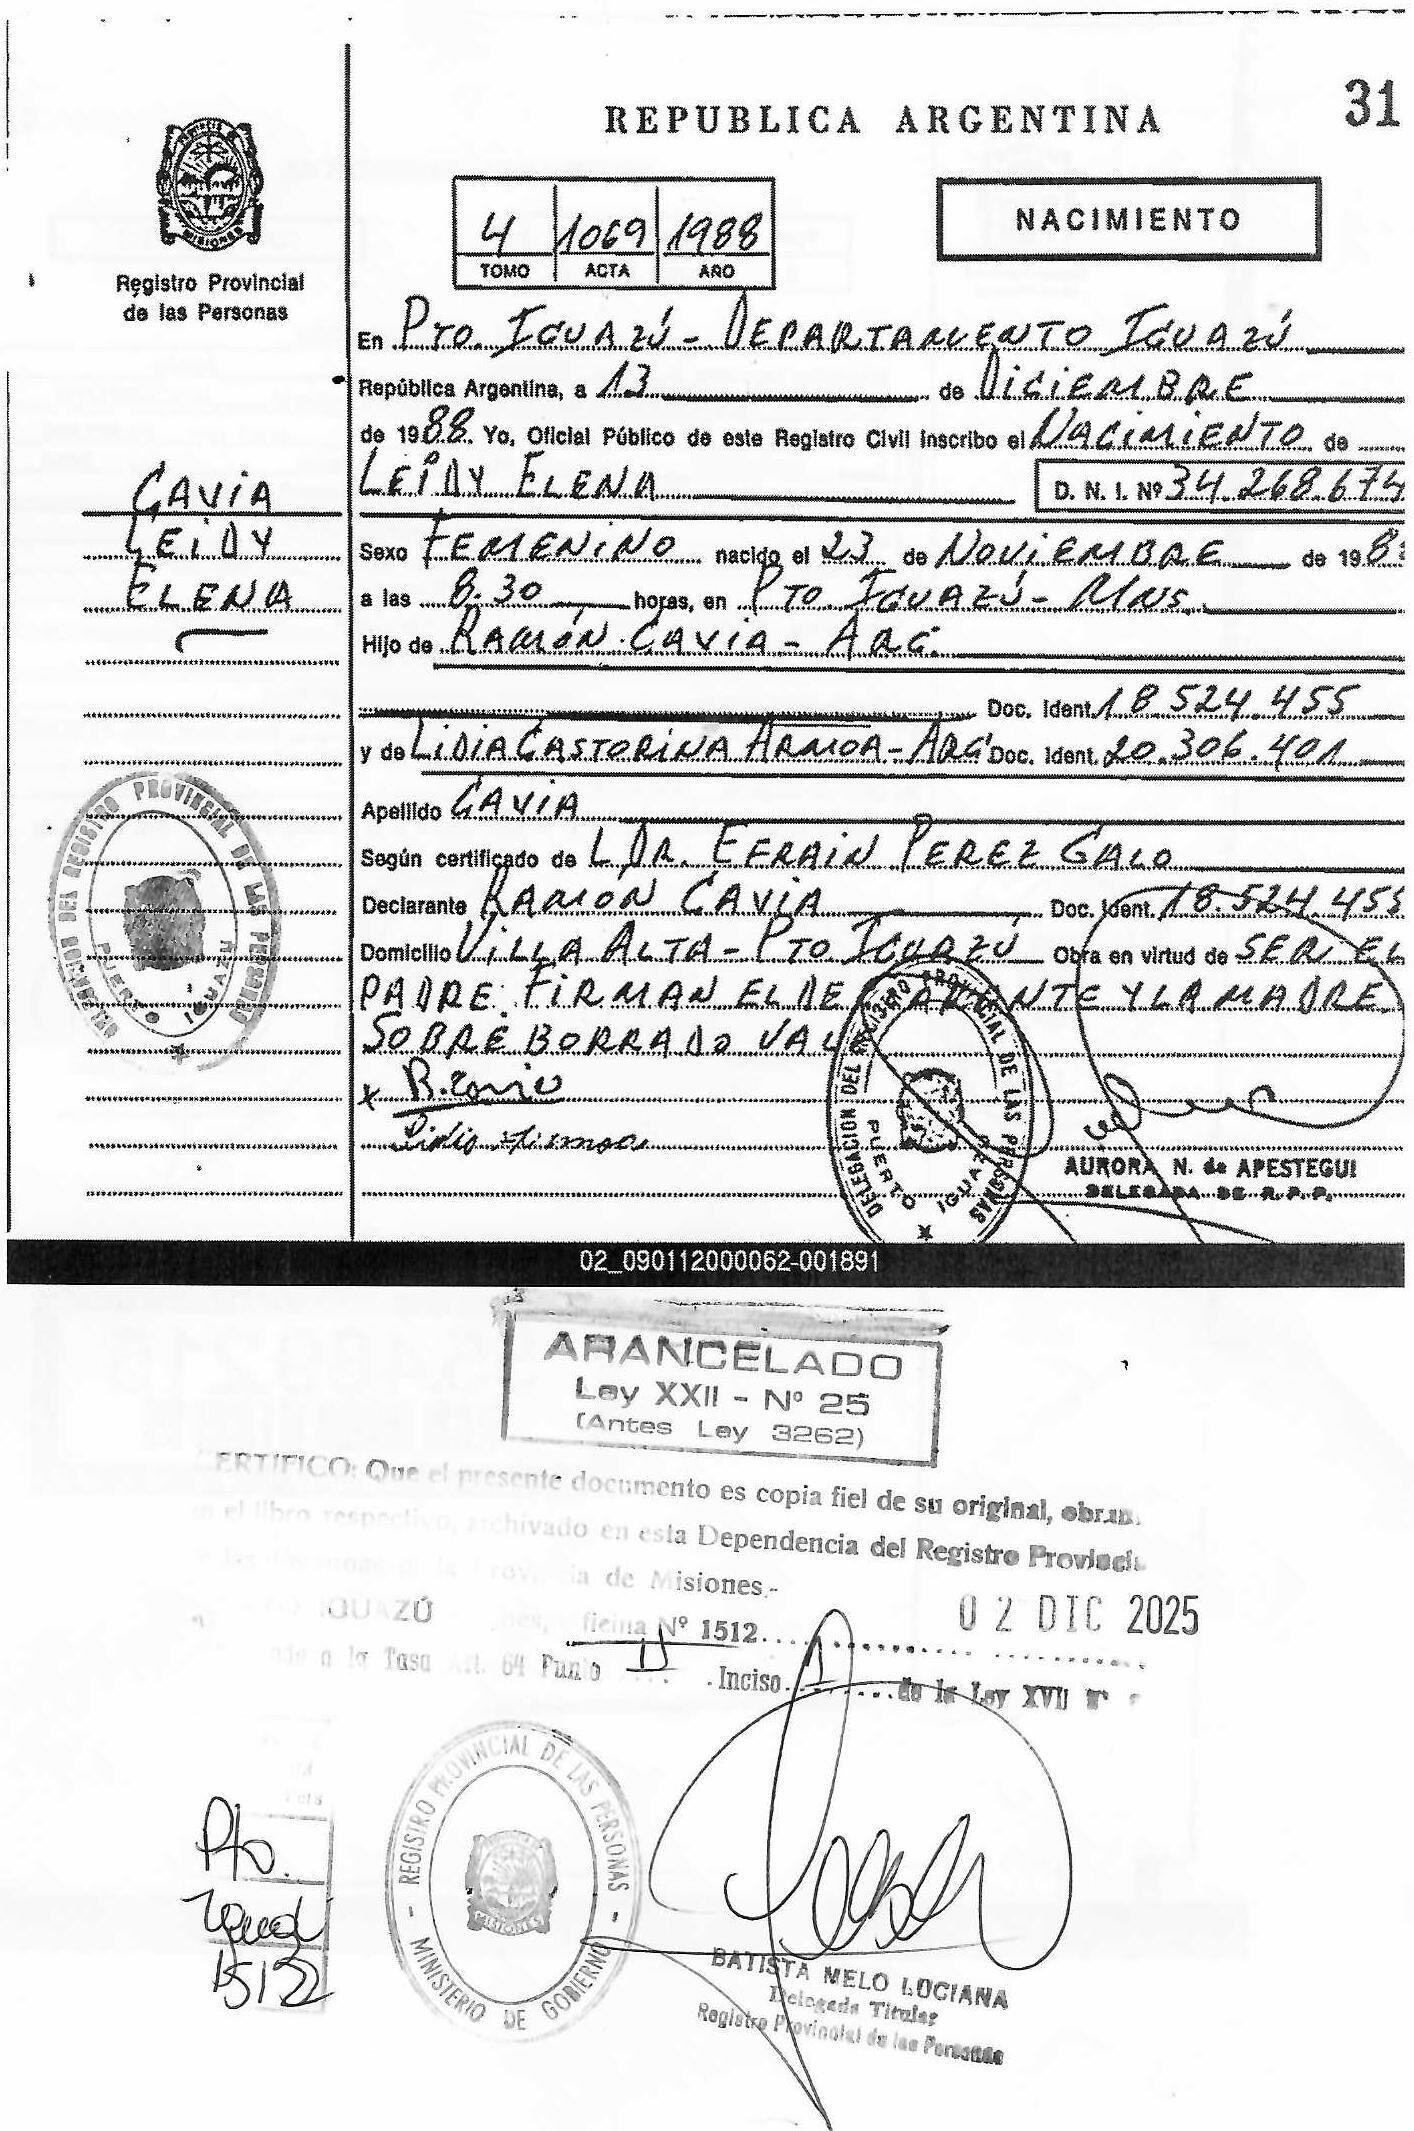 REPUBLICA ARGENTINA
31
MISIONES
Registro Provincial
de las Personas
4 1069 1988
TOMO ACTA AÑO
NACIMIENTO
En PTO. IGUAZÚ - DEPARTAMENTO IGUAZÚ
República Argentina, a 13 de DICIEMBRE
de 1988. Yo, Oficial Público de este Registro Civil inscribo el NACIMIENTO de
LEIDY ELENA D. N. I. Nº 34.268.674
GAVIA
LEIDY
ELENA
Sexo FEMENINO nacido el 23 de NOVIEMBRE de 198
a las 8.30 horas, en PTO. IGUAZÚ - MNS.
Hijo de RAMÓN GAVIA - ARG.
Doc. Ident. 18.524.455
y de LIDIA CASTORINA ARMOA - ARG Doc. Ident. 20.306.401
Apellido GAVIA
Según certificado de L DR. EFRAIN PEREZ GALO
Declarante RAMON GAVIA Doc. Ident. 18.524.455
Domicilio VILLA ALTA - PTO IGUAZÚ Obra en virtud de SER EL
PADRE: FIRMAN EL DECLARANTE Y LA MADRE
SOBRE BORRADO VALE
DELEGACION DEL REGISTRO PROVINCIAL DE LAS PERSONAS
PUERTO IGUAZU
x R. Gavia
Lidia Armoa
DELEGACION DEL REGISTRO PROVINCIAL DE LAS PERSONAS
PUERTO IGUAZU
AURORA N. de APESTEGUI
DELEGADA DE R.P.P.
02_090112000062-001891
ARANCELADO
Ley XXII - Nº 25
(Antes Ley 3262)
CERTIFICO: Que el presente documento es copia fiel de su original, obran
en el libro respectivo, archivado en esta Dependencia del Registro Provinci
de las Personas de la Provincia de Misiones.-
IGUAZÚ Nº 1512 02 DIC 2025
a la Tasa Art. 64 Punto II Inciso 1 de la Ley XVII Nº
REGISTRO PROVINCIAL DE LAS PERSONAS
MISIONES
MINISTERIO DE GOBIERNO
Pto.
Iguazú
1512
BATISTA MELO LUCIANA
Delegada Titular
Registro Provincial de las Personas